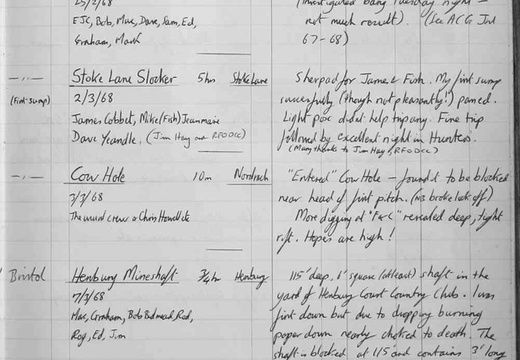 25/2/68
EJC, Bob, Mac, Dave, Sam, Ed,
Graham, Mark
(Investigated bang Tuesday night –
not much result). (See ACG Jnl
67-68)
–··– Stoke Lane Slocker 5hrs Stoke Lane
(First sump) 2/3/68
James Cobbet, Mike (Fish) Jeanmaire
Dave Yeandle. (Jim Hay and RFODCC)
Sherpad for James & Fish. My first sump
succesfully (though not pleasantly!) passed.
Light poor didn't help trip any. Fine trip
followed by excellent night in Hunters.
(Many thanks to Jim Hay & RFODCC)
–··– Cow Hole 10m Nordrach
3/3/68
The usual crew & Chris Howell
"Entered" Cow Hole – found it to be blocked
near head of first pitch. (NB broke lock off)
More digging at revealed deep, tight
rift. Hopes are high!
Bristol Henbury Mineshaft 3/4 hr Henbury
7/3/68
Mac, Graham, Bob, Red,
Roy, Ed, Jim
115' deep, 1' square (at least) shaft in the
yard of Henbury Court Country Club. I was
first down but due to dropping burning
paper down nearly choked to death. The
shaft is blocked at 115' and contains 3' long